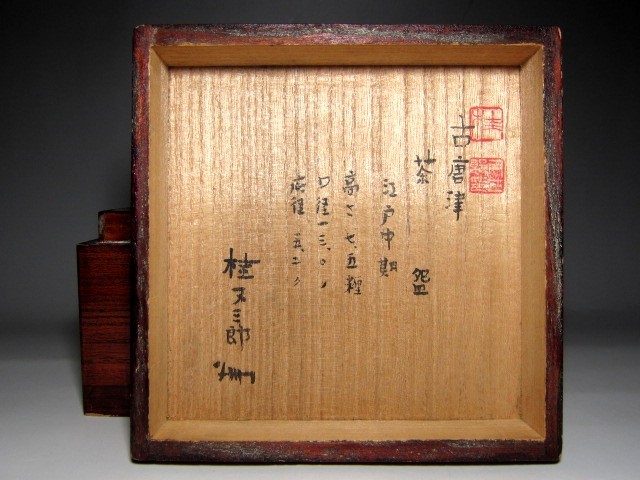 古唐津
茶盌
江戸中期
高さ 七.五糎
口径 一三.〇〃
底径 五.二〃
桂又三郎